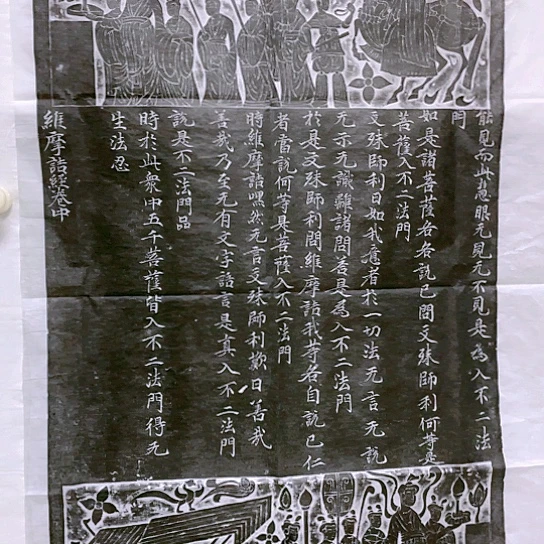 能見而此慧眼无見无不見是為入不二法
門
如是諸菩薩各各說已問文殊師利何等是
菩薩入不二法門
文殊師利曰如我意者於一切法无言无說
无示无識離諸問答是為入不二法門
於是文殊師利問維摩詰我等各自說已仁
者當說何等是菩薩入不二法門
時維摩詰嘿然无言文殊師利歎曰善哉
善哉乃至无有文字語言是真入不二法門
說是不二法門品
時於此眾中五千菩薩皆入不二法門得无
生法忍
維摩詰經卷中